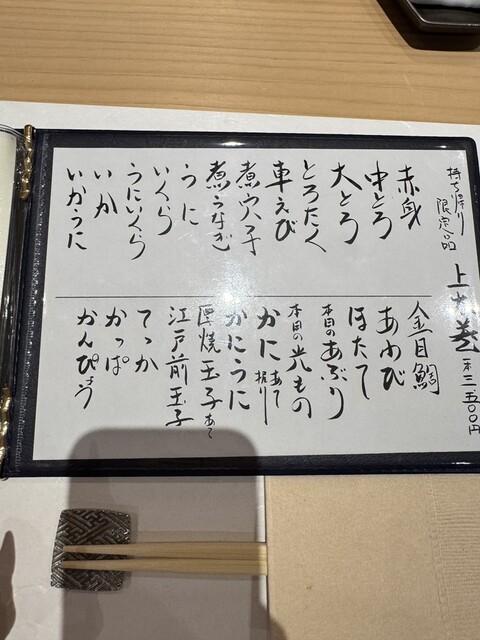 持ち帰り
限定品
上太巻 一本 三五〇〇円
赤身
中とろ
大とろ
とろたく
車えび
煮穴子
煮うなぎ
うに
いくら
うにいくら
いか
いかうに
金目鯛
あわび
ほたて
本日のあぶり
本日の光もの
かに あて 握り
かにうに
厚焼玉子 あて
江戸前玉子
てっか
かっぱ
かんぴょう